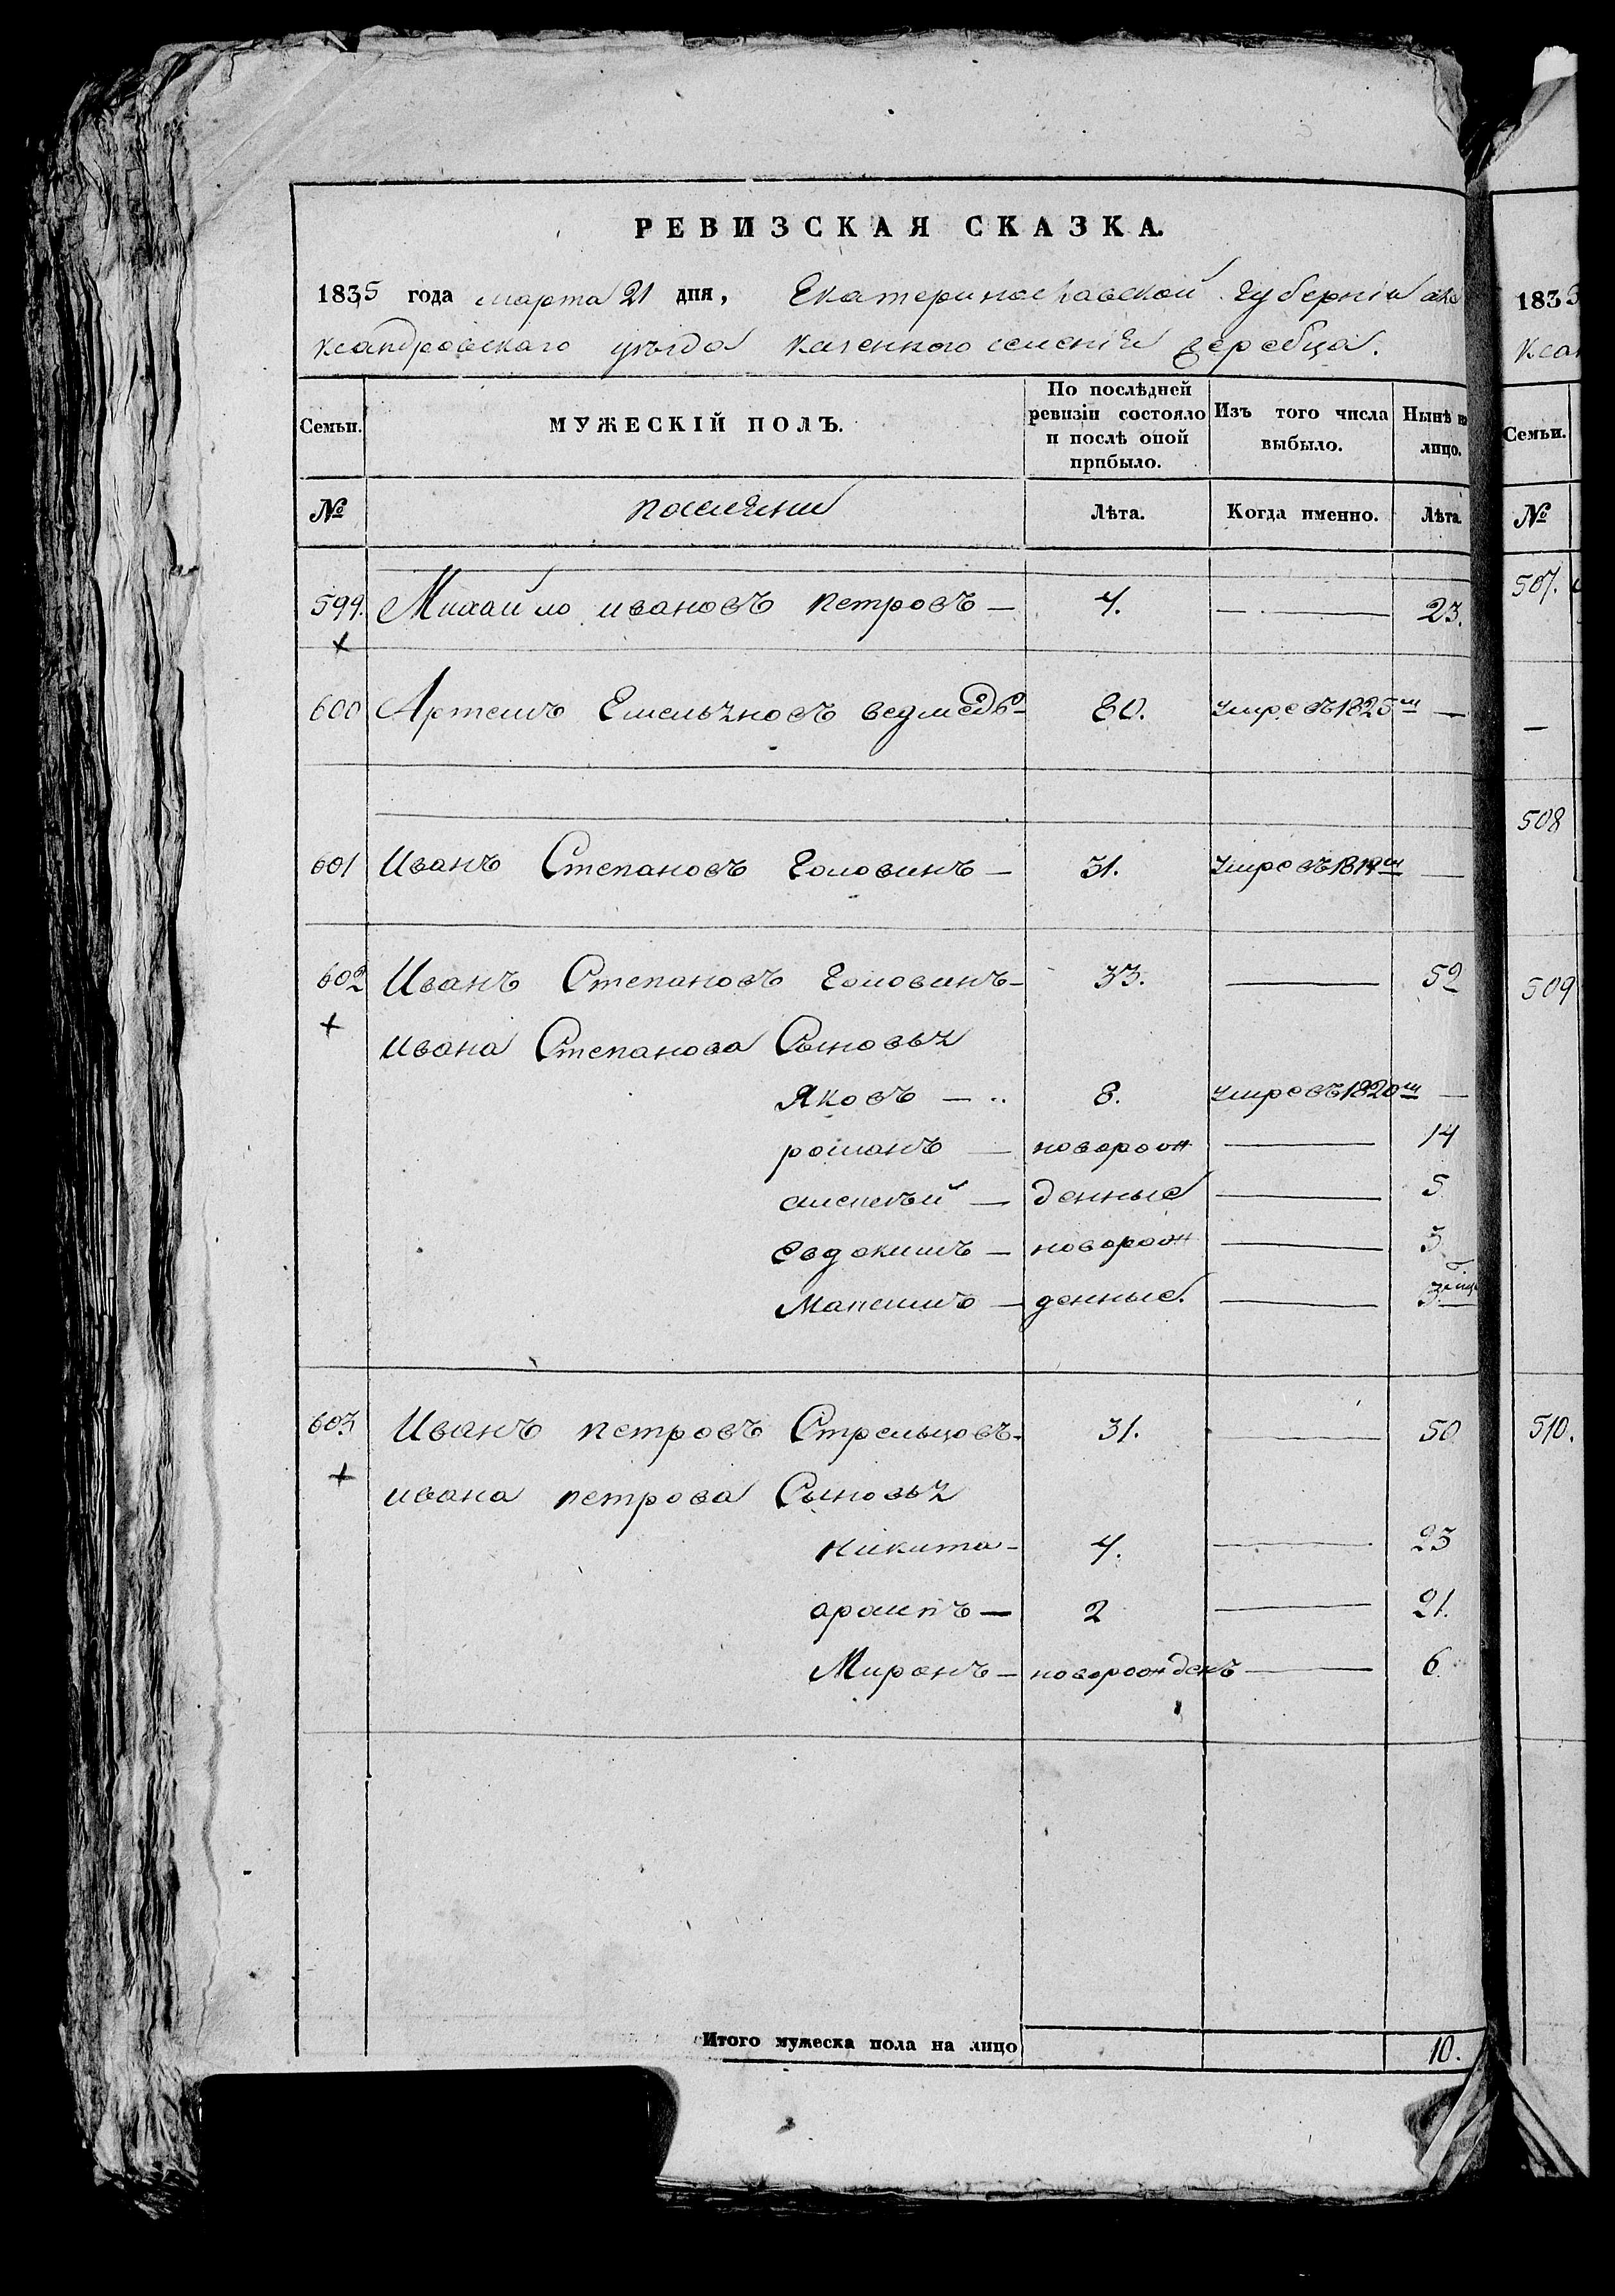 РЕВИЗСКАЯ СКАЗКА.
1835 года марта 21 дня, Екатеринославской губерніи але
ксандровскаго уѣзда казенного селенія жеребца.
Семьи. МУЖЕСКІЙ ПОЛЪ. По послѣдней ревизіи состояло и послѣ оной прибыло. Изъ того числа выбыло. Нынѣ на лицо.
№ поселяни Лѣта. Когда именно. Лѣта
599. Михайло ивановъ петровъ — 4. — 23.
600 Артемъ Емельяновъ ведмедь 80. умре въ 1825м —
601 Иванъ Степановъ Головинъ — 31. умре въ —
602 Иванъ Степановъ Головинъ — 33. — 52
ивана Степанова Сыновья
Яковъ — 8. умре въ 1820м —
романъ — новорож — 14
алексѣй — денные — 5
Евдокимъ — новорож — 3
Максимъ — денные. — 3
603 Иванъ петровъ Стрельцовъ. 31. — 50
ивана петрова Сыновья
никита — 4. — 23
архипъ — 2 — 21.
Миронъ — новорожденъ — 6
Итого мужеска пола на лицо 10.
183
Семьи.
№
507.
—
508
509
510.